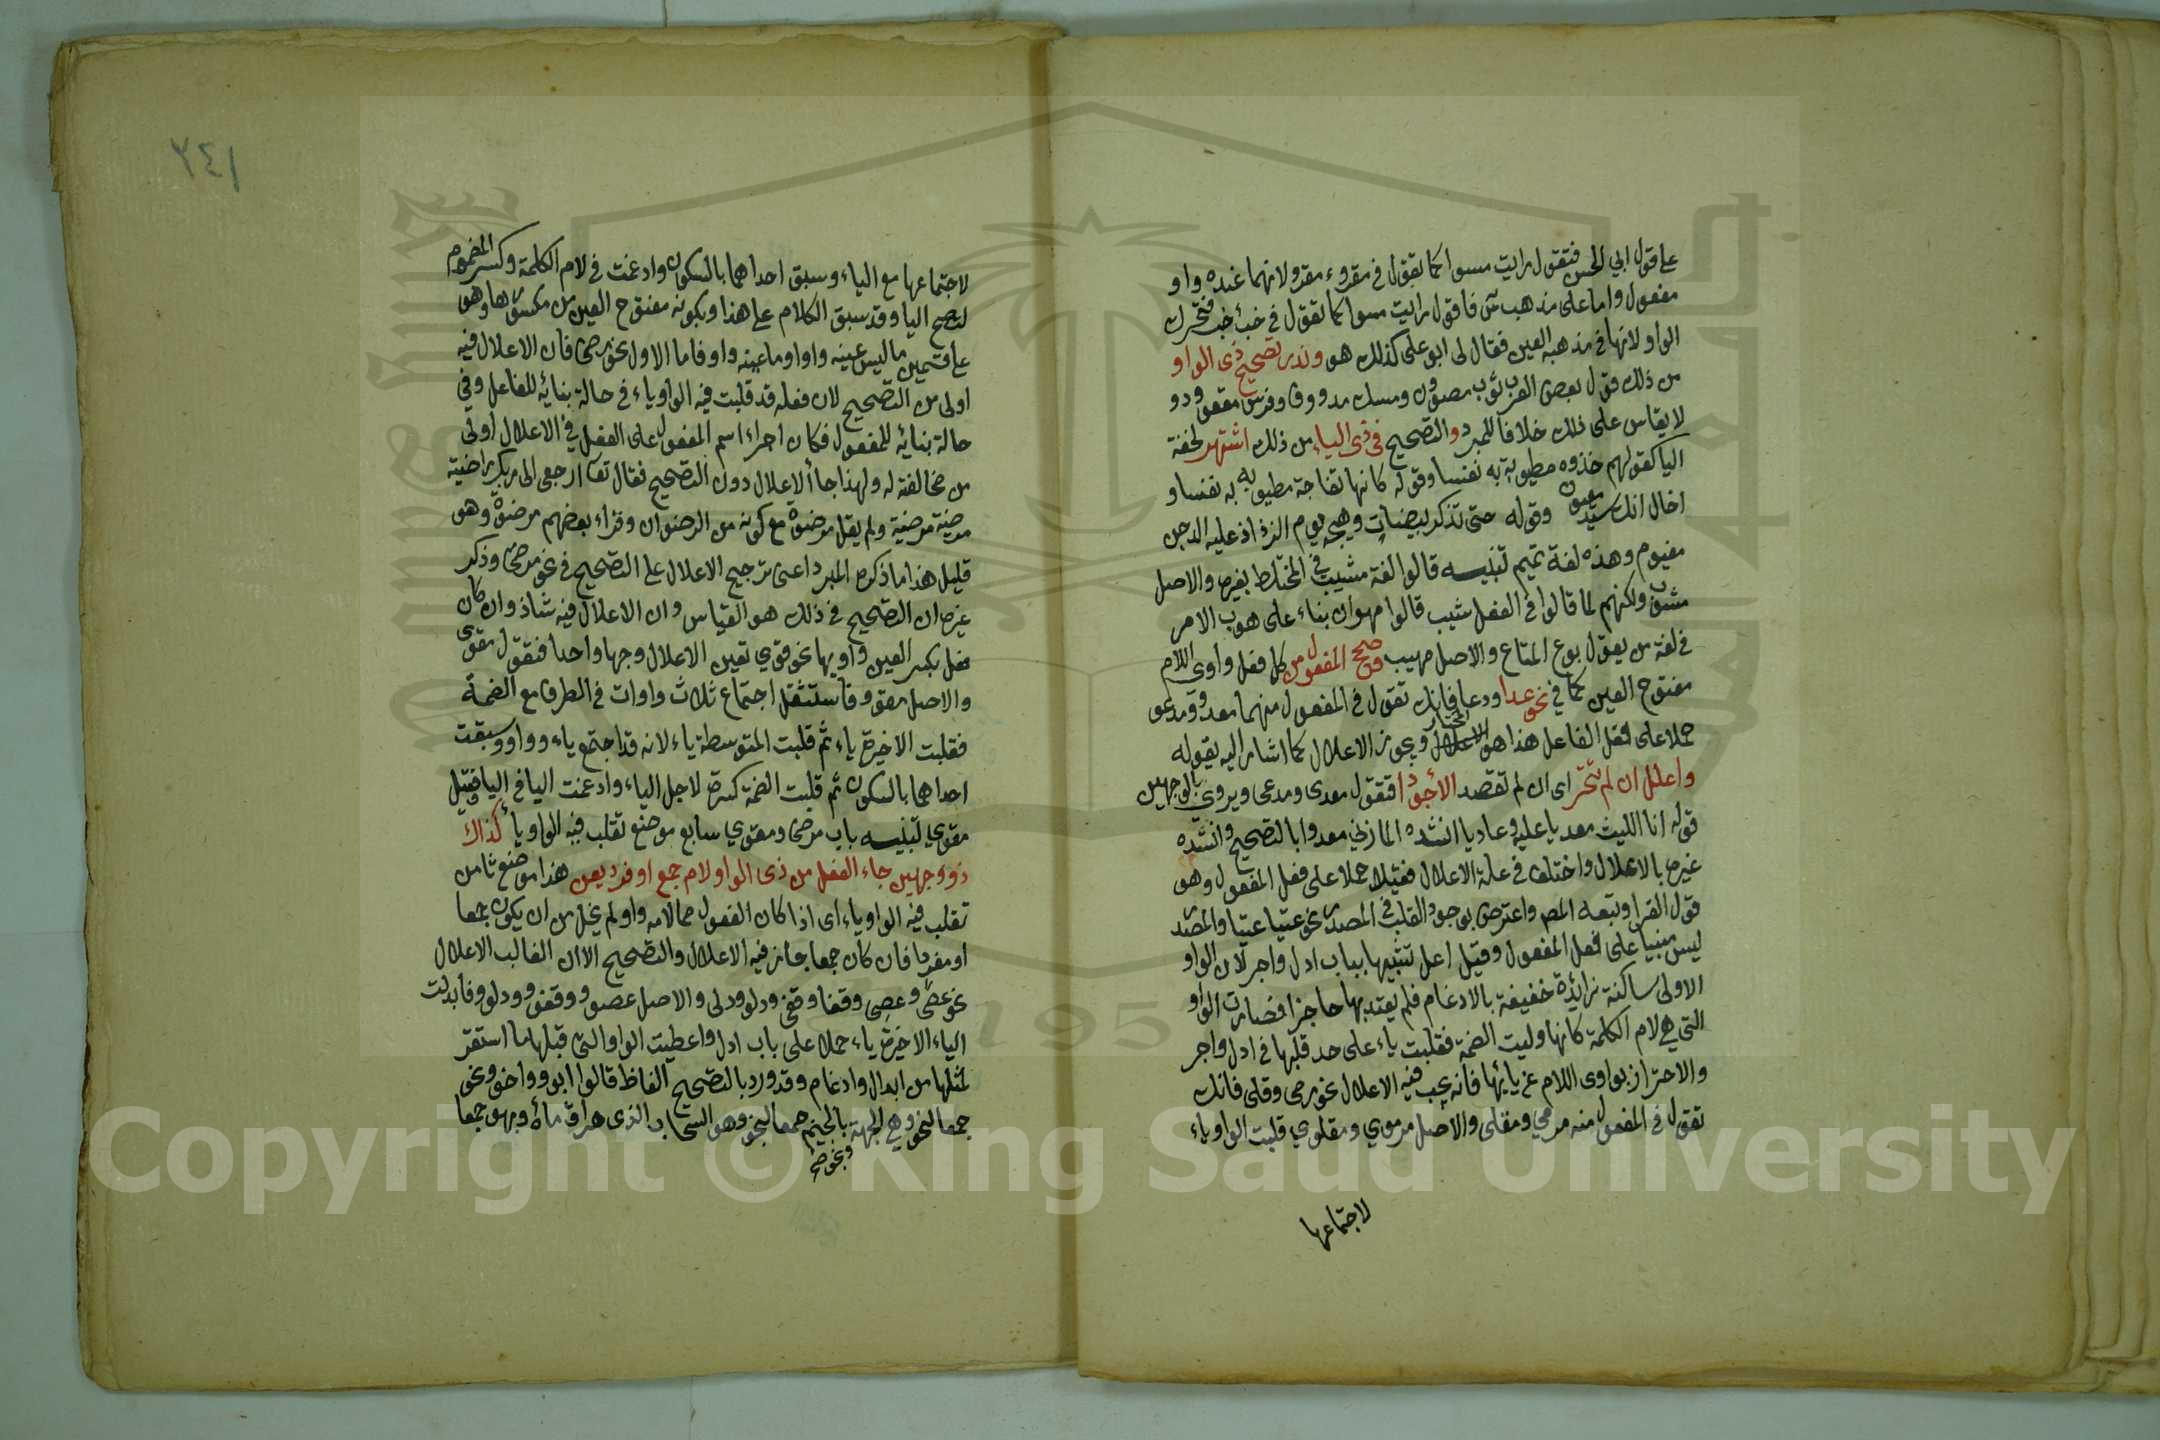 على قول ابي الحسن فتقول رايت مسوا كما تقول في مقروء مقرو لانهما عنده واو
مفعول واما على مذهب س فاقول رايت مسوا كما تقول في خبء خب فتحرك
الواو لانها في مذهبه العين فقال لى ابو على كذلك هو وندر تصحيح ذى الواو
من ذلك قول بعض العرب ثوب مصوون ومسك مدووف وفرس مقوود و
لا يقاس على ذلك خلافا للمبرد والتصحيح في ذى الياء من ذلك اشتهر لخفة
اليا كقولهم خذوه مطيوبة به نفسا وقوله كانها تفاحة مطيوبه به نفسا و
اخال انك سيد معيون وقوله حتى تذكر بيضات وهيجه يوم الرذاذ عليه الدجن
مغيوم وهذه لغة تميم تنبيـــه قالوا لغة مشيب في المختلط بغيره والاصل
مشوب ولكنهم لما قالوا في الفعل شيب قالوا مهوب بناء على هوب الامر
في لغة من يقول بوع المتاع والاصل مهيب وصحح المفعول من كل فعل واوى اللام
مفتوح العين كما في نحو عدا ودعا فانك تقول في المفعول منهما معدو ومدعو
حملا على فعل الفاعل هذا هو المختار ويجوز الاعلال كما اشار اليه بقوله
واعلل ان لم تتحر اى ان لم تقصد الأجودا فتقول معدى ومدعى ويروى بالوجهين
قوله انا الليث معديا عليه وعاديا انشده المازني معدوا بالتصحيح وانشده
غيره بالاعلال واختلف في علة الاعلال فقيل حملا على فعل المفعول وهو
قول الفرا وتبعه المص واعترض بوجود القلب في المصدر نحو عتيا عتيا والمصدر
ليس مبنيا على فعل المفعول وقيل اعل تشبيها بباب ادل واجر لان الواو
الاولى ساكنة زائدة خفيفة بالادغام فلم يعتد بها حاجزا فصارت الواو
التي هي لام الكلمة كانها وليت الضمة فقلبت ياء على حد قلبها في ادل واجر
والاحتراز بواوى اللام عن يائها فانه يجب فيه الاعلال نحو رمى وقلى فانك
تقول في المفعول منه مرمي ومقلى والاصل مرموي ومقلوي قلبت الواو ياء
لاجتماعها
٢٤١
لاجتماعها مع الياء وسبق احداهما بالسكون وادغمت في لام الكلمة وكسر المضموم
لتصح اليا وقد سبق الكلام على هذا وبكونه مفتوح العين من مكسورها وهو
على قسمين ما ليس عينه واوا وما عينه واو فاما الاول نحو رضى فان الاعلال فيه
اولى من التصحيح لان فعله قد قلبت فيه الواو ياء في حالة بنائه للفاعل وفي
حالة بنائه للمفعول فكان اجراء اسم المفعول على الفعل في الاعلال اولى
من مخالفته له ولهذا جاء الاعلال دون التصحيح فقال تعا ارجعى الى ربك راضية
مرضية ولم يقل مرضوة مع كونه من الرضوان وقراء بعضهم مرضوة وهو
قليل هذا ما ذكره المبرد اعنى ترجيح الاعلال على التصحيح في نحو مرضى وذكر
غيره ان التصحيح في ذلك هو القياس وان الاعلال فيه شاذ وان كان
فعل بكسر العين واويها نحو قوي تعين الاعلال وجها واحدا فتقول مقوى
والاصل مقووو فاستثقل اجتماع ثلاث واوات في الطرف مع الضمة
فقلبت الاخيرة ياء ثم قلبت المتوسطة ياء لانه قد اجتمع ياء وواو وسبقت
احداهما بالسكون ثم قلبت الضمة كسرة لاجل الياء وادغمت اليا في اليا فقيل
مقوي تنبيـــه باب مرضى ومقوي سابع موضع تقلب فيه الواو ياء كذاك
ذو وجهين جاء الفعل من ذى الواو لام جمع او فرد يعن هذا موضع ثامن
تقلب فيه الواو ياء اى اذا كان الفعول مما لامه واو لم يخل من ان يكون جمعا
او مفردا فان كان جمعا جاز فيه الاعلال والتصحيح الا ان الغالب الاعلال
نحو عصى وعصي وقفا وقفي ودلو ودلى والاصل عصوو وقفوو ودلوو فابدلت
الياء الاخيرة ياء حملا على باب ادل واعطيت الواو التي قبلها ما استقر
لمثلها من ابدال وادغام وقد ورد بالتصحيح الفاظ قالوا ابوو واخو ونحو
جمعا لنحو وهي الجهة بالجيم جمعا لنجو وهو السحاب الذى هراق ماءه وبهو جمعا
ونحو